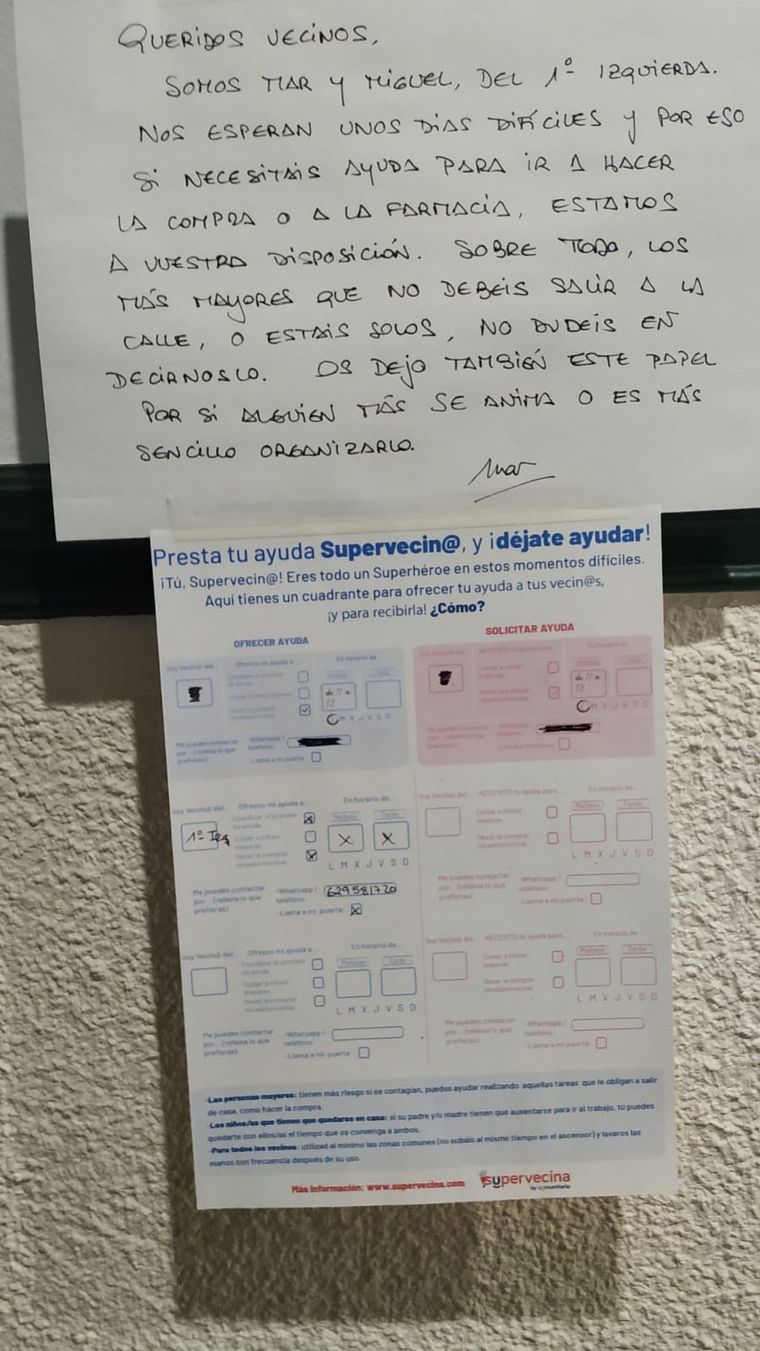 QUERIDOS VECINOS,
SOMOS MAR Y MIGUEL, DEL 1º IZQUIERDA.
NOS ESPERAN UNOS DIAS DIFÍCILES Y POR ESO
SI NECESITAIS AYUDA PARA IR A HACER
LA COMPRA O A LA FARMACIA, ESTAMOS
A VUESTRA DISPOSICIÓN. SOBRE TODO, LOS
MÁS MAYORES QUE NO DEBEIS SALIR A LA
CALLE, O ESTAIS SOLOS, NO DUDEIS EN
DECIRNOSLO. OS DEJO TAMBIÉN ESTE PAPEL
POR SI ALGUIEN MÁS SE ANIMA O ES MÁS
SENCILLO ORGANIZARLO.
Mar
Presta tu ayuda Supervecin@, y ¡déjate ayudar!
¡Tú, Supervecin@! Eres todo un Superhéroe en estos momentos difíciles.
Aquí tienes un cuadrante para ofrecer tu ayuda a tus vecin@s,
¡y para recibirla! ¿Cómo?
OFRECER AYUDA
SOLICITAR AYUDA
Soy Vecin@ del... Ofrezco mi ayuda a... En horario de...
Mañana Tarde
M X J V S D
Me puedes contactar por... (rellena lo que prefieras)
-Whatsapp / teléfono:
-Llama a mi puerta:
Soy Vecin@ del... Ofrezco mi ayuda a... En horario de...
Mañana Tarde
1º Izq
L M X J V S D
Me puedes contactar por... (rellena lo que prefieras)
-Whatsapp / teléfono: 629581720
-Llama a mi puerta:
Soy Vecin@ del... NECESITO tu ayuda para... En horario de...
Mañana Tarde
L M X J V S D
Me puedes contactar por... (rellena lo que prefieras)
-Whatsapp / teléfono:
-Llama a mi puerta:
Soy Vecin@ del... Ofrezco mi ayuda a... En horario de...
Mañana Tarde
L M X J V S D
Me puedes contactar por... (rellena lo que prefieras)
-Whatsapp / teléfono:
-Llama a mi puerta:
Soy Vecin@ del... NECESITO tu ayuda para... En horario de...
Mañana Tarde
L M X J V S D
Me puedes contactar por... (rellena lo que prefieras)
-Whatsapp / teléfono:
-Llama a mi puerta:
-Las personas mayores: tienen más riesgo si se contagian, puedes ayudar realizando aquellas tareas que le obligan a salir
de casa, como hacer la compra.
-Los niños/as que tienen que quedarse en casa: si su padre y/o madre tienen que ausentarse para ir al trabajo, tú puedes
quedarte con ellos/as el tiempo que os convenga a ambos.
-Para todos los vecinos: utilizad al mínimo las zonas comunes (no subáis al mismo tiempo en el ascensor) y lavaros las
manos con frecuencia después de su uso.
Más información: www.supervecina.com
supervecina